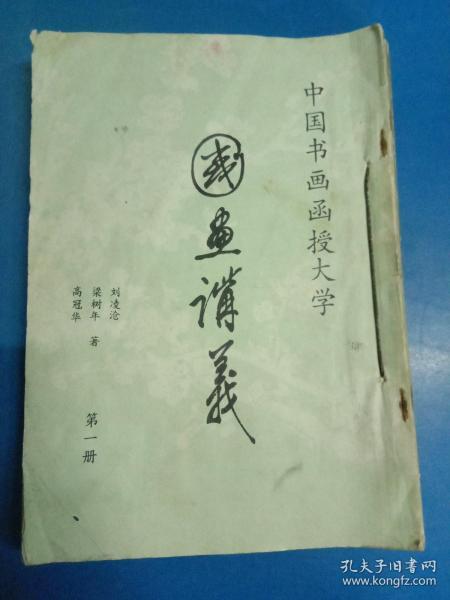 中国书画函授大学
國画講義
刘凌沧
梁树年 著
高冠华
第一册
孔夫子旧书网
www.kongfz.com